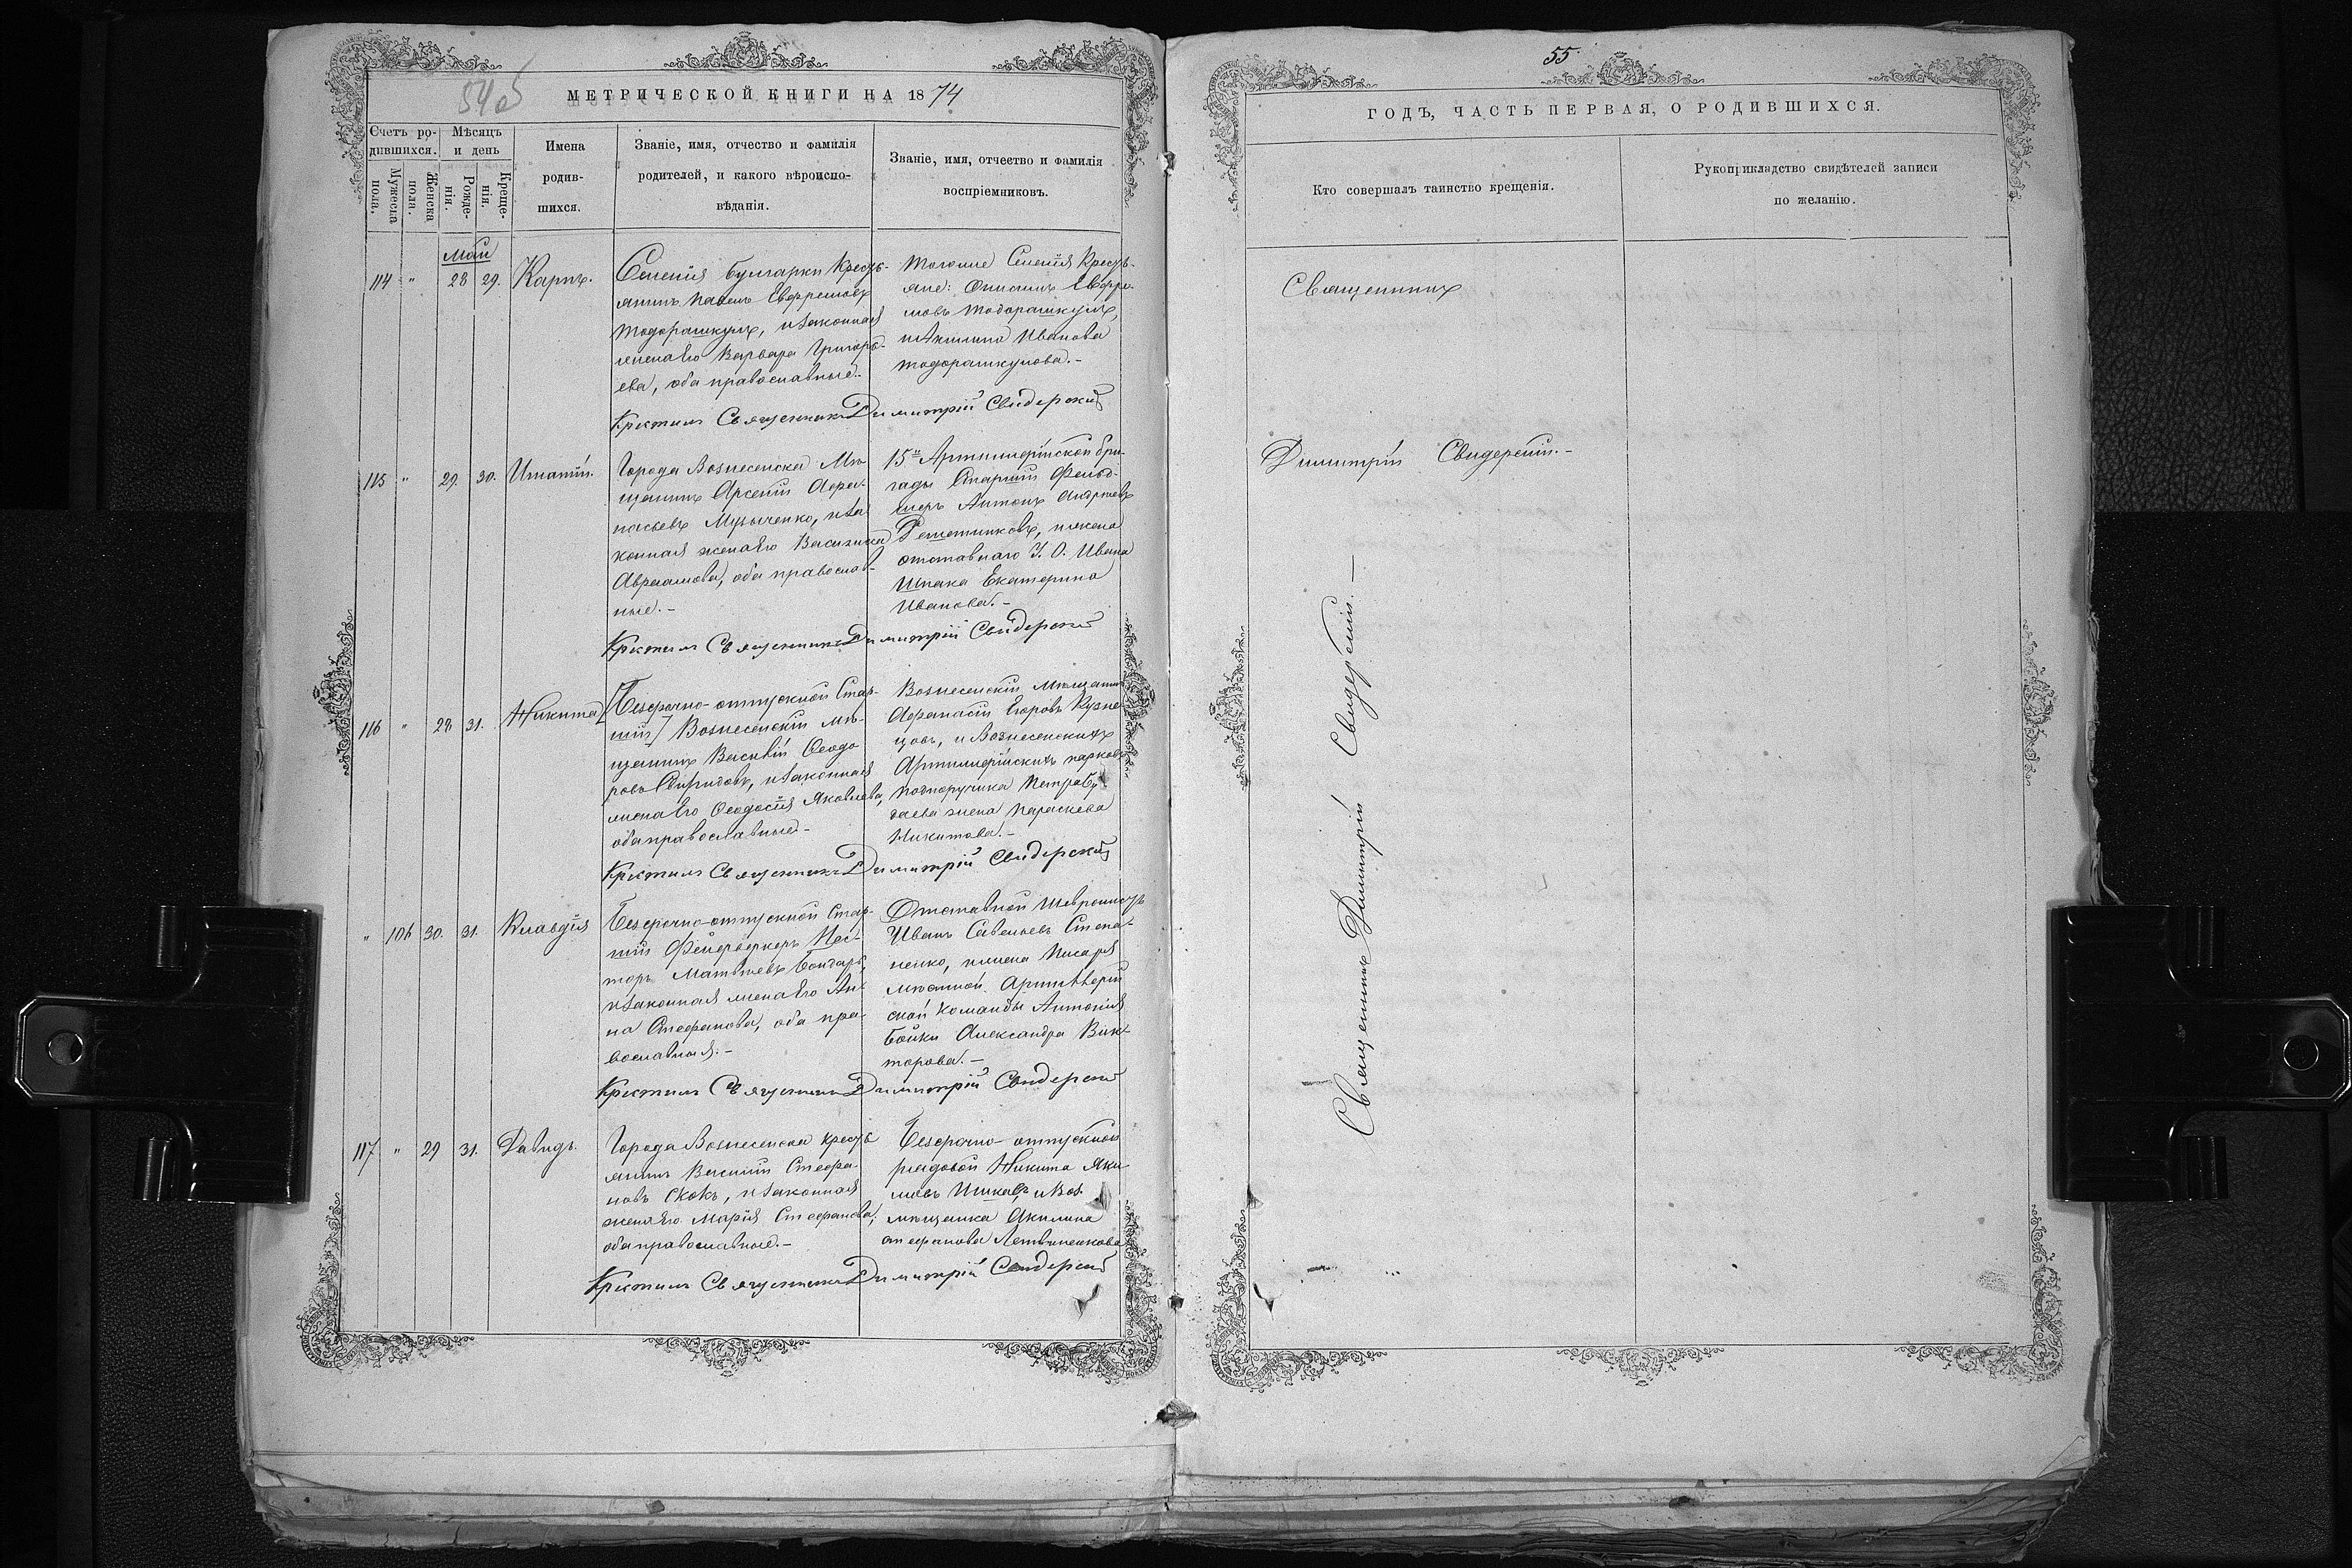 54об
МЕТРИЧЕСКОЙ КНИГИ НА 1874
Счетъ ро-
дившихся.
Мужеска
пола.
Женска
пола.
Мѣсяцъ
и день
Рожде-
нія.
Креще-
нія.
Имена
родив-
шихся.
Званіе, имя, отчество и фамилія
родителей, и какого вѣроиспо-
вѣданія.
Званіе, имя, отчество и фамилія
воспріемниковъ.
Май
114 " 28 29. Карпъ.
Селенія Булгарки Кресть-
янинъ Павелъ Евфремовъ
Тодорашкулъ, и законная
жена его Варвара Григорь-
ева, оба православные.
Тогоже Селенія Кресть-
яне: Евфре-
мовъ Тодорашкулъ,
и Акилина Иванова
Тодорашкулова.-
Крестилъ Священникъ Димитрій Свидерскій
115 " 29. 30. Игнатій.
Города Вознесенска Мѣ-
щанинъ Арсеній Афа-
насьевъ Музыченко, и за-
конная жена его Васильева
Авраамова, оба православ-
ные.-
15й Артиллерійской бри-
гады Старшій Фельд-
шеръ Антонъ Андреевъ
Решетниковъ, и жена
отставнаго У. О. Ивана
Шпака Екатерина
Иванова.-
Крестилъ Священникъ Димитрій Свидерскій
116 " 28 31. Никита
Безсрочно-отпускной Стар-
шій] Вознесенскій мѣ-
щанинъ Василій Ѳеодо-
ровъ Свиридовъ, и законная
жена его Ѳеодосія Яковлева,
оба православные.-
Вознесенскій Мѣщанинъ
Афанасій Егоровъ Кузне-
цовъ, и Вознесенскихъ
Артиллерійскихъ парковъ
подпоручика
жена Параскева
Никитова.-
Крестилъ Священникъ Димитрій Свидерскій
" 106 30. 31. Клавдія
Безсрочно-отпускной Стар-
шій Фейерверкеръ Нес-
торъ Матвѣевъ Бондарь,
и законная жена его Ан-
на Стефанова, оба пра-
вославныя.-
Отставной
Иванъ Савельевъ Степа-
ненко, и жена Писаря
мѣстной Артиллерій-
ской команды Антонія
Бойки Александра Вик-
торова.-
Крестилъ Священникъ Димитрій Свидерскій
117 " 29 31. Давидъ.
Города Вознесенска кресть-
янинъ Василій Стефа-
новъ Скокъ, и законная
жена его Марія Стефанова,
оба православные.-
Безсрочно-отпускной
рядовой Никита Яки-
мовъ и Воз.
мѣщанка Акилина
Стефанова Летвиненкова
Крестилъ Священникъ Димитрій Свидерскій
55
ГОДЪ, ЧАСТЬ ПЕРВАЯ, О РОДИВШИХСЯ.
Кто совершалъ таинство крещенія.
Рукоприкладство свидѣтелей записи
по желанію.
Священникъ
Димитрій Свидерскій.-
Священникъ Димитрій Свидерскій.-